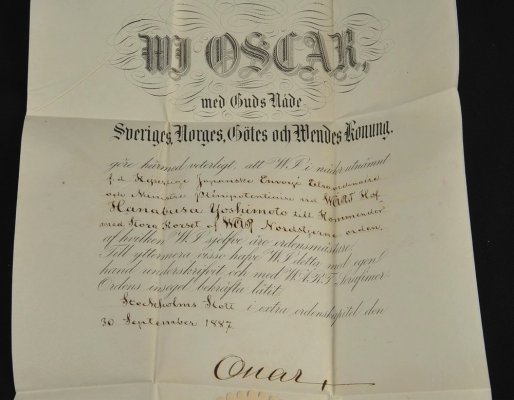 WJ OSCAR,
med Guds Nåde
Sveriges, Norges, Götes och Wendes Konung.
göre härmed veterligt, att WJ i nåder utnämnt
f.d. Kejserlige Japanske Envoyé Extraordinaire
och Ministre Plénipotentiaire vid Wårt Hof
Hanabusa Yoshimoto till Kommendör
med Stora Korset af Wår Nordstjerne orden,
af hvilken WJ sjelfve äre ordensmästare.
Till yttermera visso hafve WJ detta med egen
hand underskrifvit och med W.K.R.T. Serafimer-
Ordens insegel bekräfta låtit.
Stockholms Slott i extra ordenskapitel den
30 September 1887.
Oscar